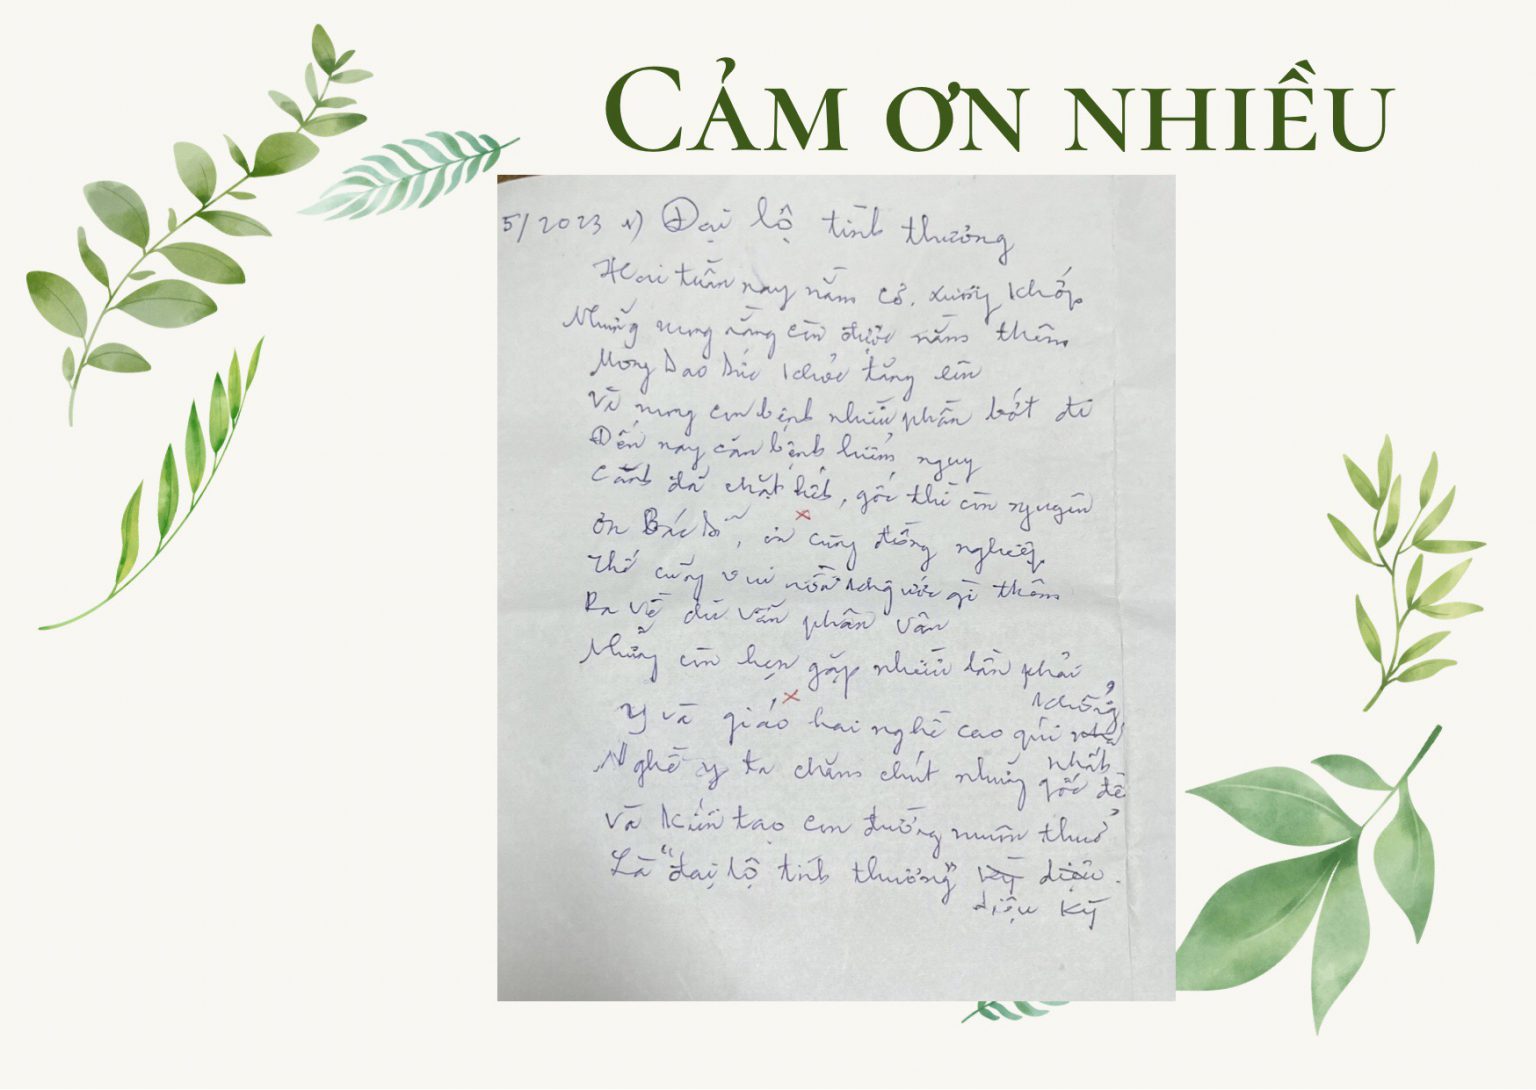 CẢM ƠN NHIỀU
5/2023 Đại lộ tình thương
Hai tuần nay nằm cơ, xương khớp
Những mong rằng còn được nằm thêm
Mong sao sức khỏe tăng lên
Và mong cơn bệnh nhiều phần bớt đi
Đến nay căn bệnh hiểm nguy
Cành đã chặt hết, gốc thì còn nguyên
Ơn Bác Sĩ, ơn cùng đồng nghiệp
Thế cũng vui rồi gì thêm
Ra về dù vẫn phân vân
Những còn hẹn gặp nhiều lần phải
không
Y và giáo hai nghề cao quí nhà
nhất
Nghề y ta chăm chút những gốc đề
Và kiến tạo con đường muôn thuở
Là "đại lộ tình thương" kỳ diệu.
diệu kỳ